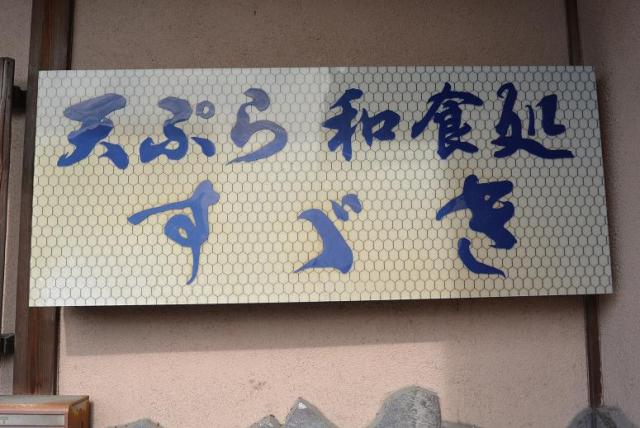 天ぷら 和食処
すゞき